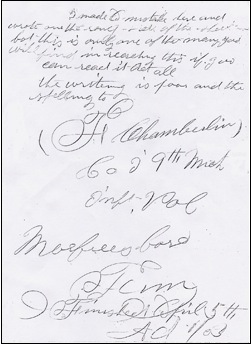 I made a mistake here and
wrote on the rong side of the sheet
but this is only one of the many you
will find in reading this if you
can read it at all
the writing is poor and the
spelling to
Chamberlin
Co I 9th Mich
Inft Vol
Murfreesboro
Tenn
Finished April 5th
AD 1863